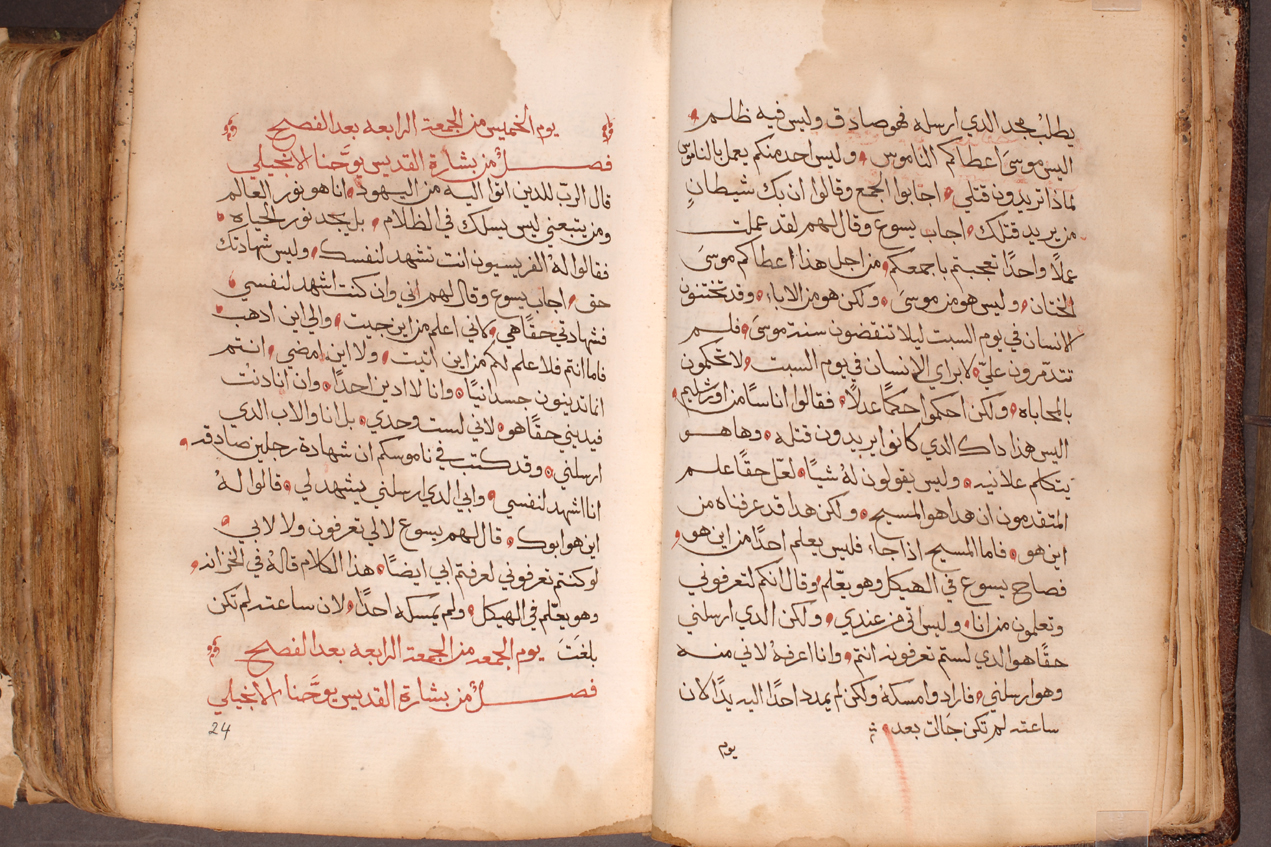 يطلب مجد الدي ارسله فهو صادق وليس فيه ظلم
اليس موسَى اعطاكم الناموس وليس احد منكم يعمل بالناموس
لماذا تريدون قتلي اجابوا الجمع وقالوا ان بك شيطانٍ
من يريد قتلك اجاب يسوع وقال لهم لقد عملت
عملًا واحدًا تعجبتم باجمعكم من اجل هذا اعطاكم موسَى
الختان وليس هو من موسَى ولكن هو من الاباء وقد تختنون
الانسان في يوم السبت ليلا تنقضون سنة موسَى فلم
تتدمرون عليّ لابراي الانسان في يوم السبت لا تحكمون
بالمحاباه ولكن احكموا حكمًا عدلًا فقالوا اناسًا من اورشليم
اليس هذا داك الدي كانوا يريدون قتله وها هو
يتكلم علانيه وليس يقولون لهُ شيًا لعلّ حقًا علم
المتقدمون ان هدا هو المسيح ولكن هدا قد عرفناه من
اين هو فاما المسيح اذا جاء فليس يعلم احدًا من اين هو
فصاح يسوع في الهيكل وهو يعّلم وقال انكم لتعرفوني
وتعلمون من انا وليس اتي من عندي ولكن الدي ارسلني
حقًا هو الدي لستم تعرفونه انتم وانا اعرفهُ لاني منه
وهو ارسلني فارادوا مسكهُ ولكن لم يمدد احدًا اليه يدًا لان
ساعته لم تكن جَات بعد
يوم
يوم الخميس من الجمعة الرابعه بعد الفصح
فصلٌ من بشارة القديس يوحَّنا الانجيلي
قال الرب للدين اتوا اليه من اليهود انا هو نور العالم
ومن يتبعني ليس يسلك في الظلام بل يجد نور الحياه
فقالوا لهُ الفريسيون انت تشهد لنفسك وليس شهادتك
حق اجاب يسوع وقال لهم اني وان كنت اشهد لنفسي
فشهادتي حقًا هي لاني اعلم من اين جيت والي اين ادهب
فاما انتم فلا علم لكم من اين اتيت ولا اين امضي انتم
انما تدينون جسدانيًا وانا لا ادين احدًا وان انا دنت
فيديني حقًا هو لاني لست وحدي بل انا والاب الدي
ارسلني وقد كتب في ناموسكم ان شهادة رجلين صادقه
انا اشهد لنفسي وابي الدي ارسلني يشهد لي قالوا لهُ
اين هو ابوك قال لهم يسوع لا لي تعرفون ولا لابي
لو كنتم تعرفوني لعرفتم ابي ايضًا هذا الكلام قالهُ في الخزانه
وهو يعّلم في الهيكل ولم يمسكه احدًا لان ساعته لم تكن
بلغَت يوم الجمعه من الجمعة الرابعه بعد الفصح
فصلٌ من بشارة القديس يوحَّنا الانجيلي
24